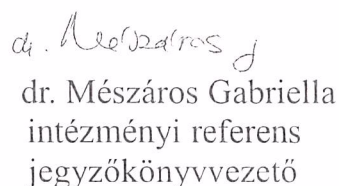 dr. Mészáros G
dr. Mészáros Gabriella
intézményi referens
jegyzőkönyvvezető